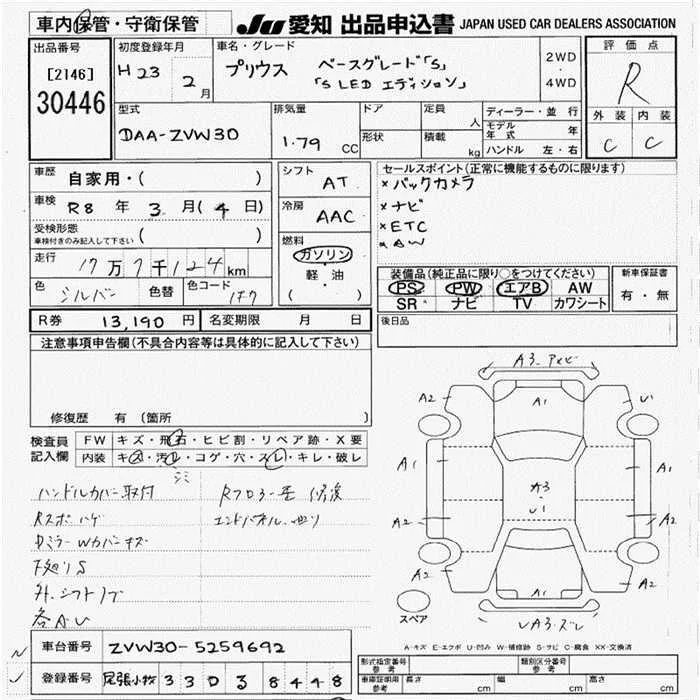 車内保管・守衛保管
JU 愛知 出品申込書 JAPAN USED CAR DEALERS ASSOCIATION
出品番号
[2146]
30446
初度登録年月
H 23 2月
車名・グレード
プリウス ベースグレード「S」
「S LED エディション」
2WD
・
4WD
評価点
R
外装 内装
C C
型式
DAA-ZVW30
排気量
1.79 CC
ドア
形状
定員 人
積載 kg
ディーラー・並行
モデル年式 年
ハンドル 左・右
車歴 自家用・( )
車検 R8 年 3 月(4 日)
受検形態
車検付きのみ記入して下さい ( )
走行 17万7千124km
色 シルバー 色替 色コード 1F7
シフト AT
冷房 AAC
燃料
ガソリン
軽・油
( )
セールスポイント(正常に機能するものに限ります)
*バックカメラ
*ナビ
*ETC
*AW
装備品(純正品に限り○をつけてください)
PS PW エアB AW
SR ナビ TV カワシート
新車保証書
有・無
後日品
R券 13,190 円 名変期限 月 日
注意事項申告欄(不具合内容等は具体的に記入して下さい)
修復歴 有(箇所 )
検査員記入欄
FW キズ・飛石・ヒビ割・リペア跡・X要
内装 キズ・汚レ・コゲ・穴・スレ・キレ・破レ
ハンドルカバー取付
Rスポ ハゲ
Dミラー Wカバーキズ
下廻りS
外.シフトノブ
各AU
Rフロアー歪 修復
エンドパネル.廻り
A3.アイビ
A2
A1
U1
A1
A3
U1
A1
A2
A2
A2
A2
A1
UA3.ズレ
スペア
A-キズ E-エクボ U-凹み W-補修跡 S-サビ C-腐食 XX-交換済
車台番号 ZVW30-5259692
登録番号 尾張小牧 330 ろ 8448
型式指定番号 参考
類別区分番号 参考
車庫証明用 参考 長さ cm 幅 cm 高さ cm